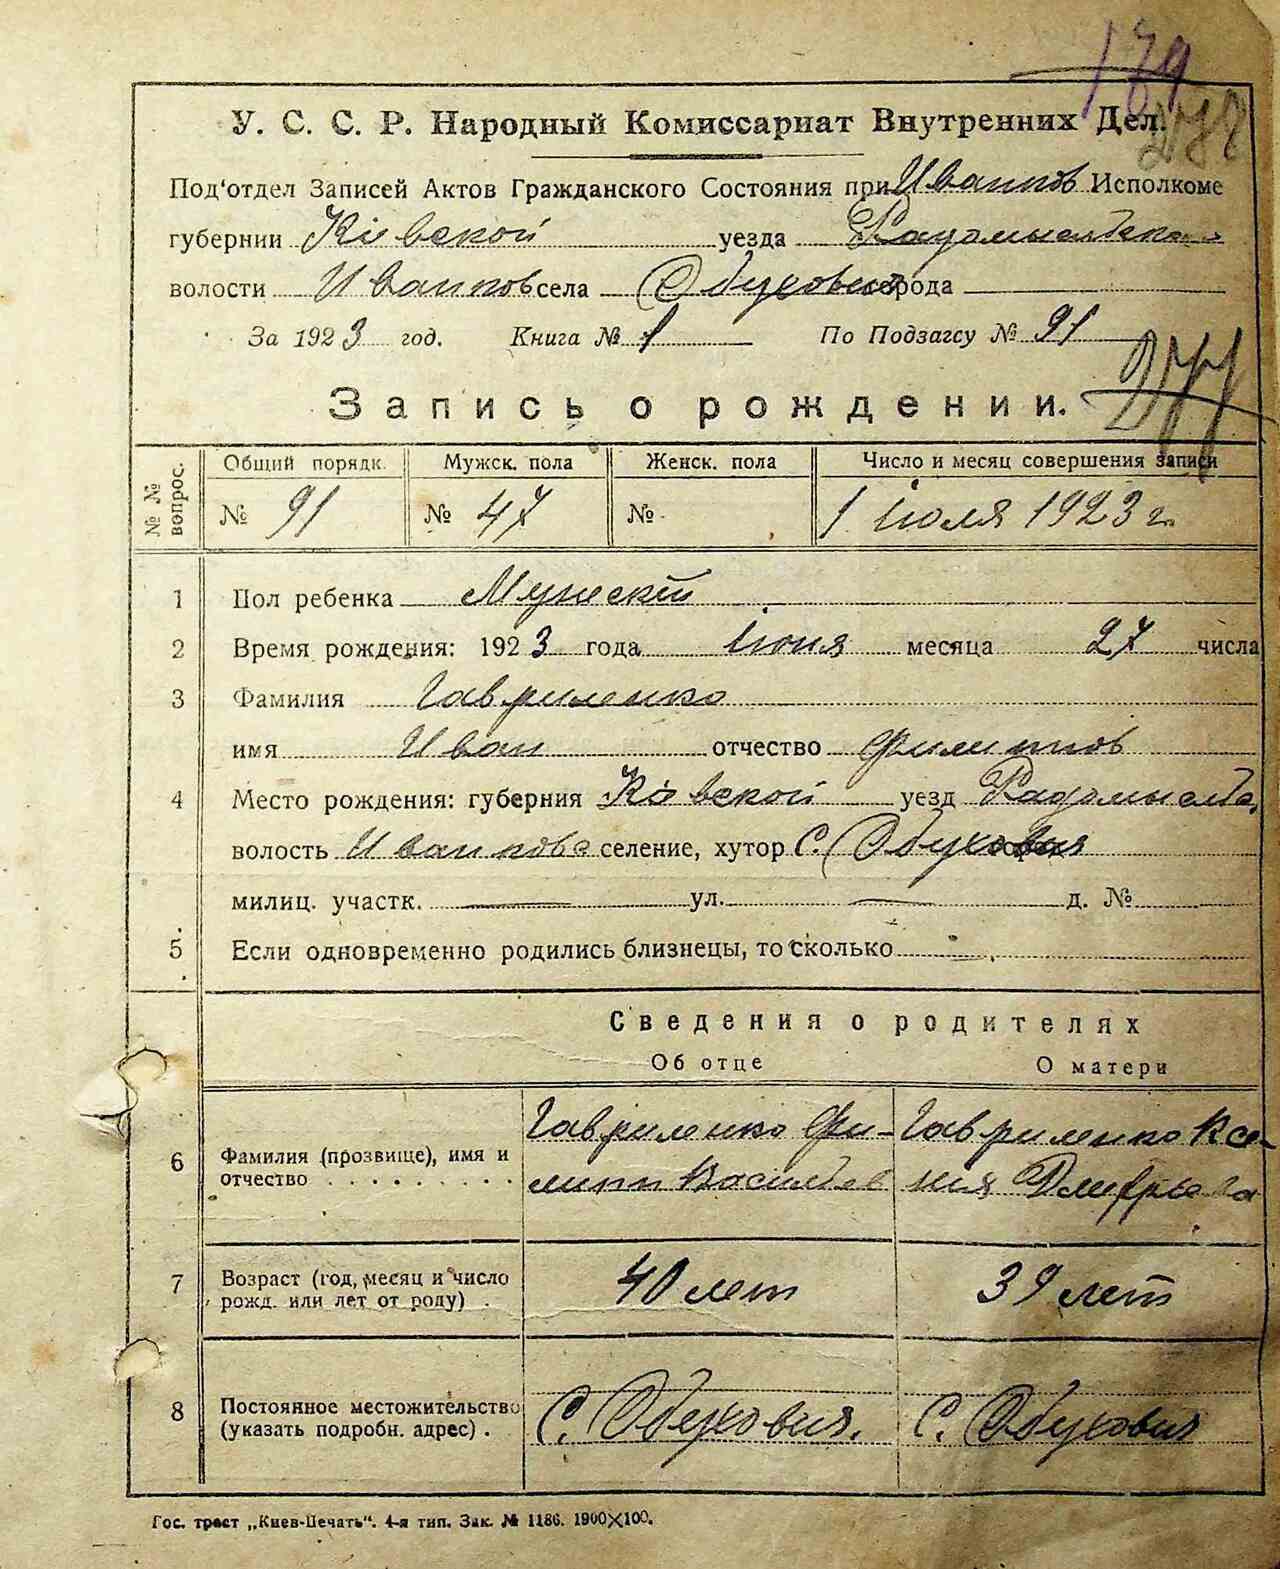 179
278
У. С. С. Р. Народный Комиссариат Внутренних Дел.
Под'отдел Записей Актов Гражданского Состояния при Иванков Исполкоме
губернии Кiевской уезда Радомысльск
волости Иванков села Обуховичи города
За 1923 год. Книга № 1 По Подзагсу № 91
277
Запись о рождении.
№ № вопрос. Общий порядк. Мужск. пола Женск. пола Число и месяц совершения записи
№ 91 № 47 № 1 Iюля 1923 г.
1 Пол ребенка Мужскiй
2 Время рождения: 1923 года Iюня месяца 27 числа
3 Фамилия Гавриленко
имя Иван отчество Филиппов
4 Место рождения: губерния Кiевской уезд Радомысльс.
волость Иванковс селение, хутор С. Обуховичи
милиц. участк. — ул. — д. №
5 Если одновременно родились близнецы, то сколько
Сведения о родителях
Об отце О матери
6 Фамилия (прозвище), имя и отчество Гавриленко Фи-
липп Васильев Гавриленко Ксе-
ния Дмитрьева
7 Возраст (год, месяц и число рожд. или лет от роду) 40 лет 39 лет
8 Постоянное местожительство (указать подробн. адрес) С. Обуховичи. С. Обуховичи
Гос. трест „Киев-Печать". 4-я тип. Зак. № 1186. 1900×100.